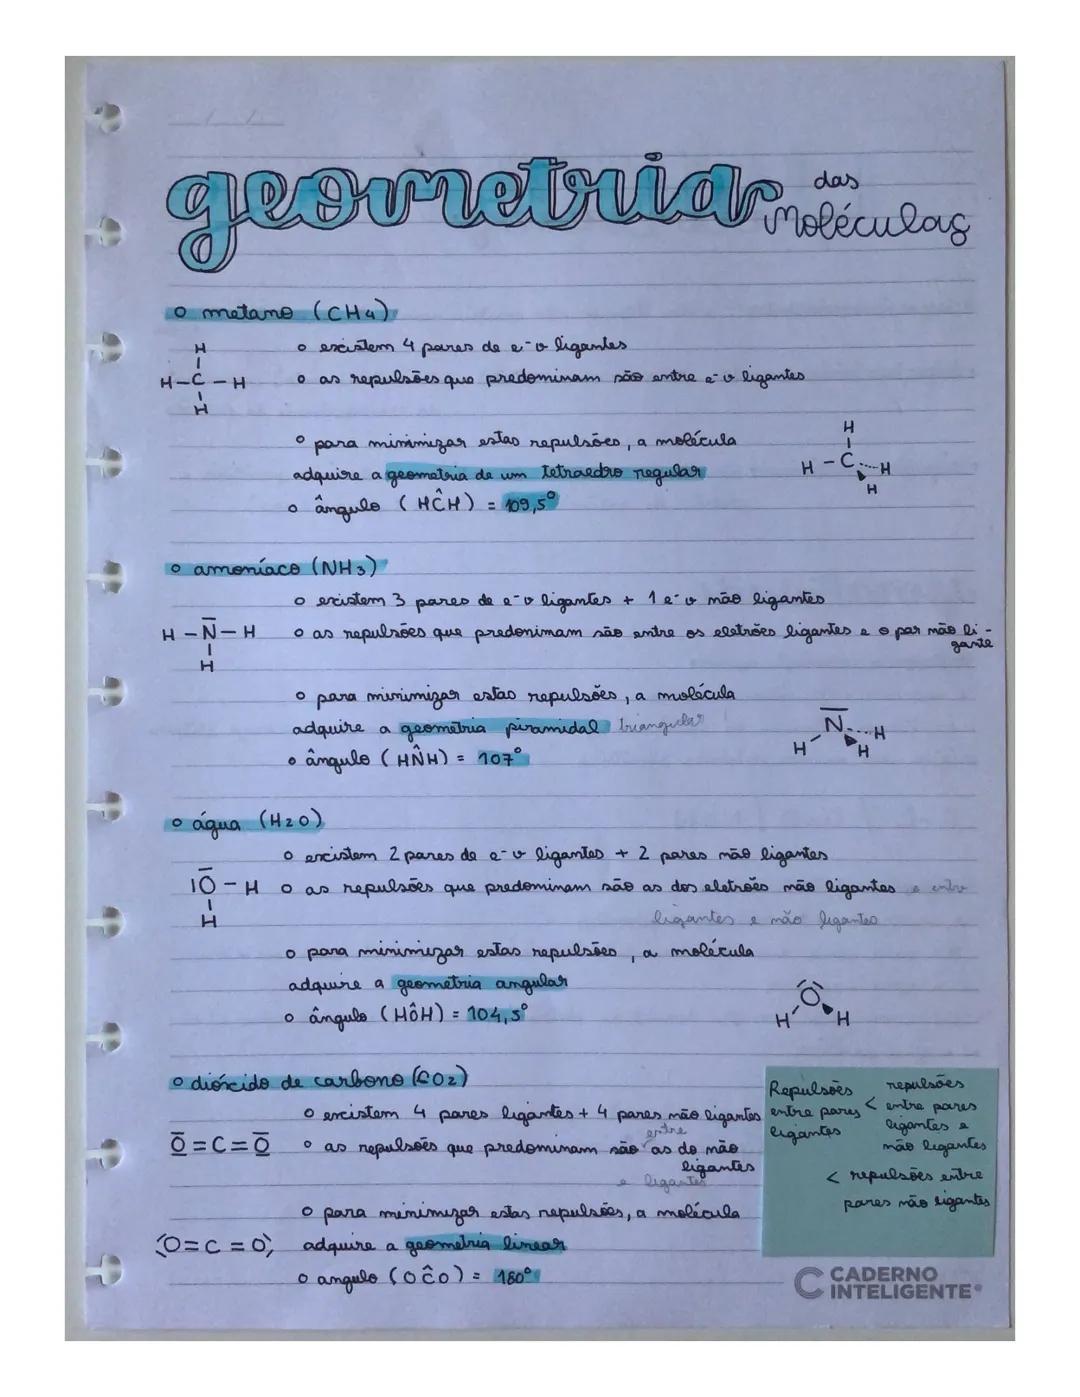 geometria das
Moléculas
o metano (CH4)
H
H-C-H
H
o existem 4 pares de e-v ligantes
o as repulsões que predominam são entre e-v ligantes
o para minimizar estas repulsões, a molécula
adquire a geometria de um tetraedro regular
o ângulo (HĈH) = 109,5°
H
H-C H
H
o amoníaco (NH3)
o existem 3 pares de e-v ligantes + 1 e-v não ligantes
H-N-H
H
o as repulsões que predonimam são entre os eletrões ligantes e o par não li-
gante
o para minimizar estas repulsões, a molécula
adquire a geometria piramidal triangular
o ângulo (HN̂H) = 107°
N H
H H
o água (H2O)
o existem 2 pares de e-v ligantes + 2 pares não ligantes
|O-H
H
o as repulsões que predominam são as dos eletrões não ligantes e entre
ligantes e não ligantes
o para minimizar estas repulsões, a molécula
adquire a geometria angular
o ângulo (HÔH) = 104,5°
O
H H
o dióxido de carbono (CO2)
o existem 4 pares ligantes + 4 pares não ligantes
O=C=O
o as repulsões que predominam são entre as do não
ligantes
e ligantes
o para minimizar estas repulsões, a molécula
O=C=O
adquire a geometria linear
o angulo (OĈO) = 180°
Repulsões
entre pares
ligantes
< repulsões
entre pares
ligantes e
não ligantes
< repulsões entre
pares não ligantes
CADERNO
INTELIGENTE®